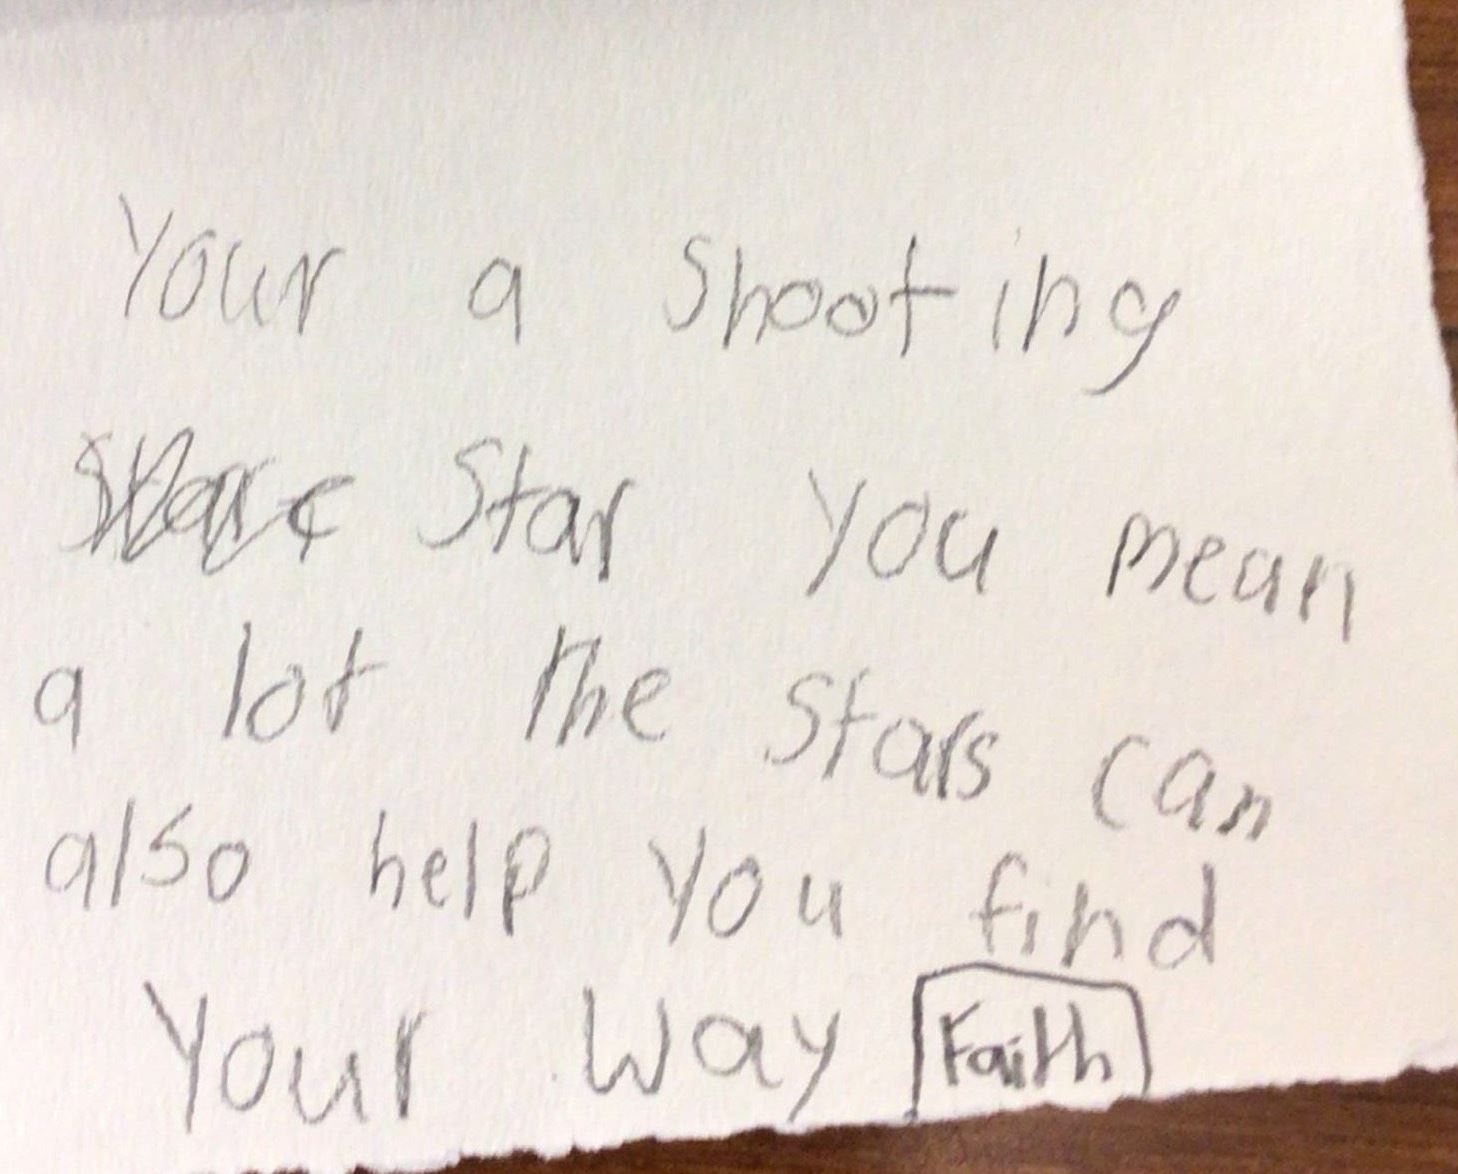 Your a shooting
Star you mean
a lot the stars can
also help you find
Your way Faith